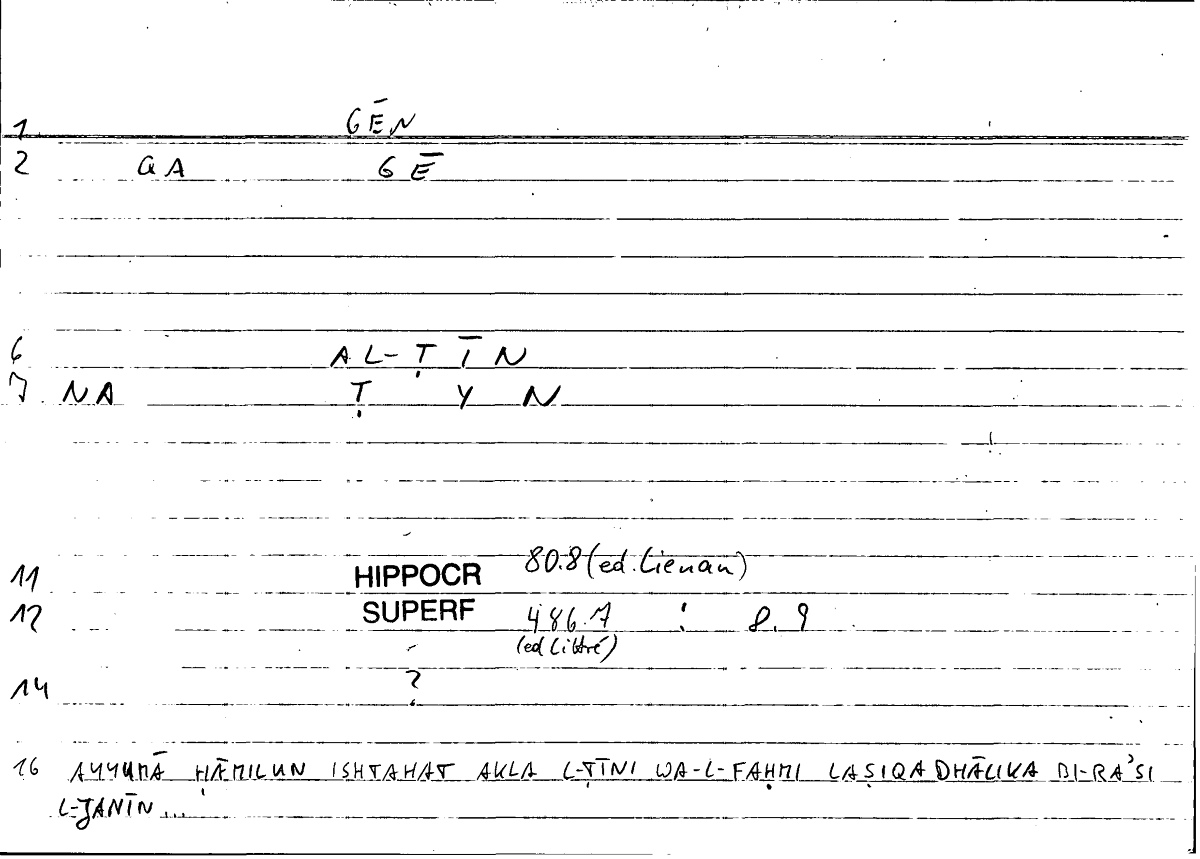 1 GĒN
2 QA GĒ
6 AL-ṬĪN
7 NA Ṭ Y N
11 HIPPOCR 80.8 (ed. Lienau)
12 SUPERF 486.7 : 8.9
(ed Littré)
14 ?
16 AYYUMĀ ḤĀMILUN ISHTAHAT AKLA L-ṬĪNI WA-L-FAḤMI LAṢIQA DHĀLIKA BI-RAʾSI
L-JANĪN...